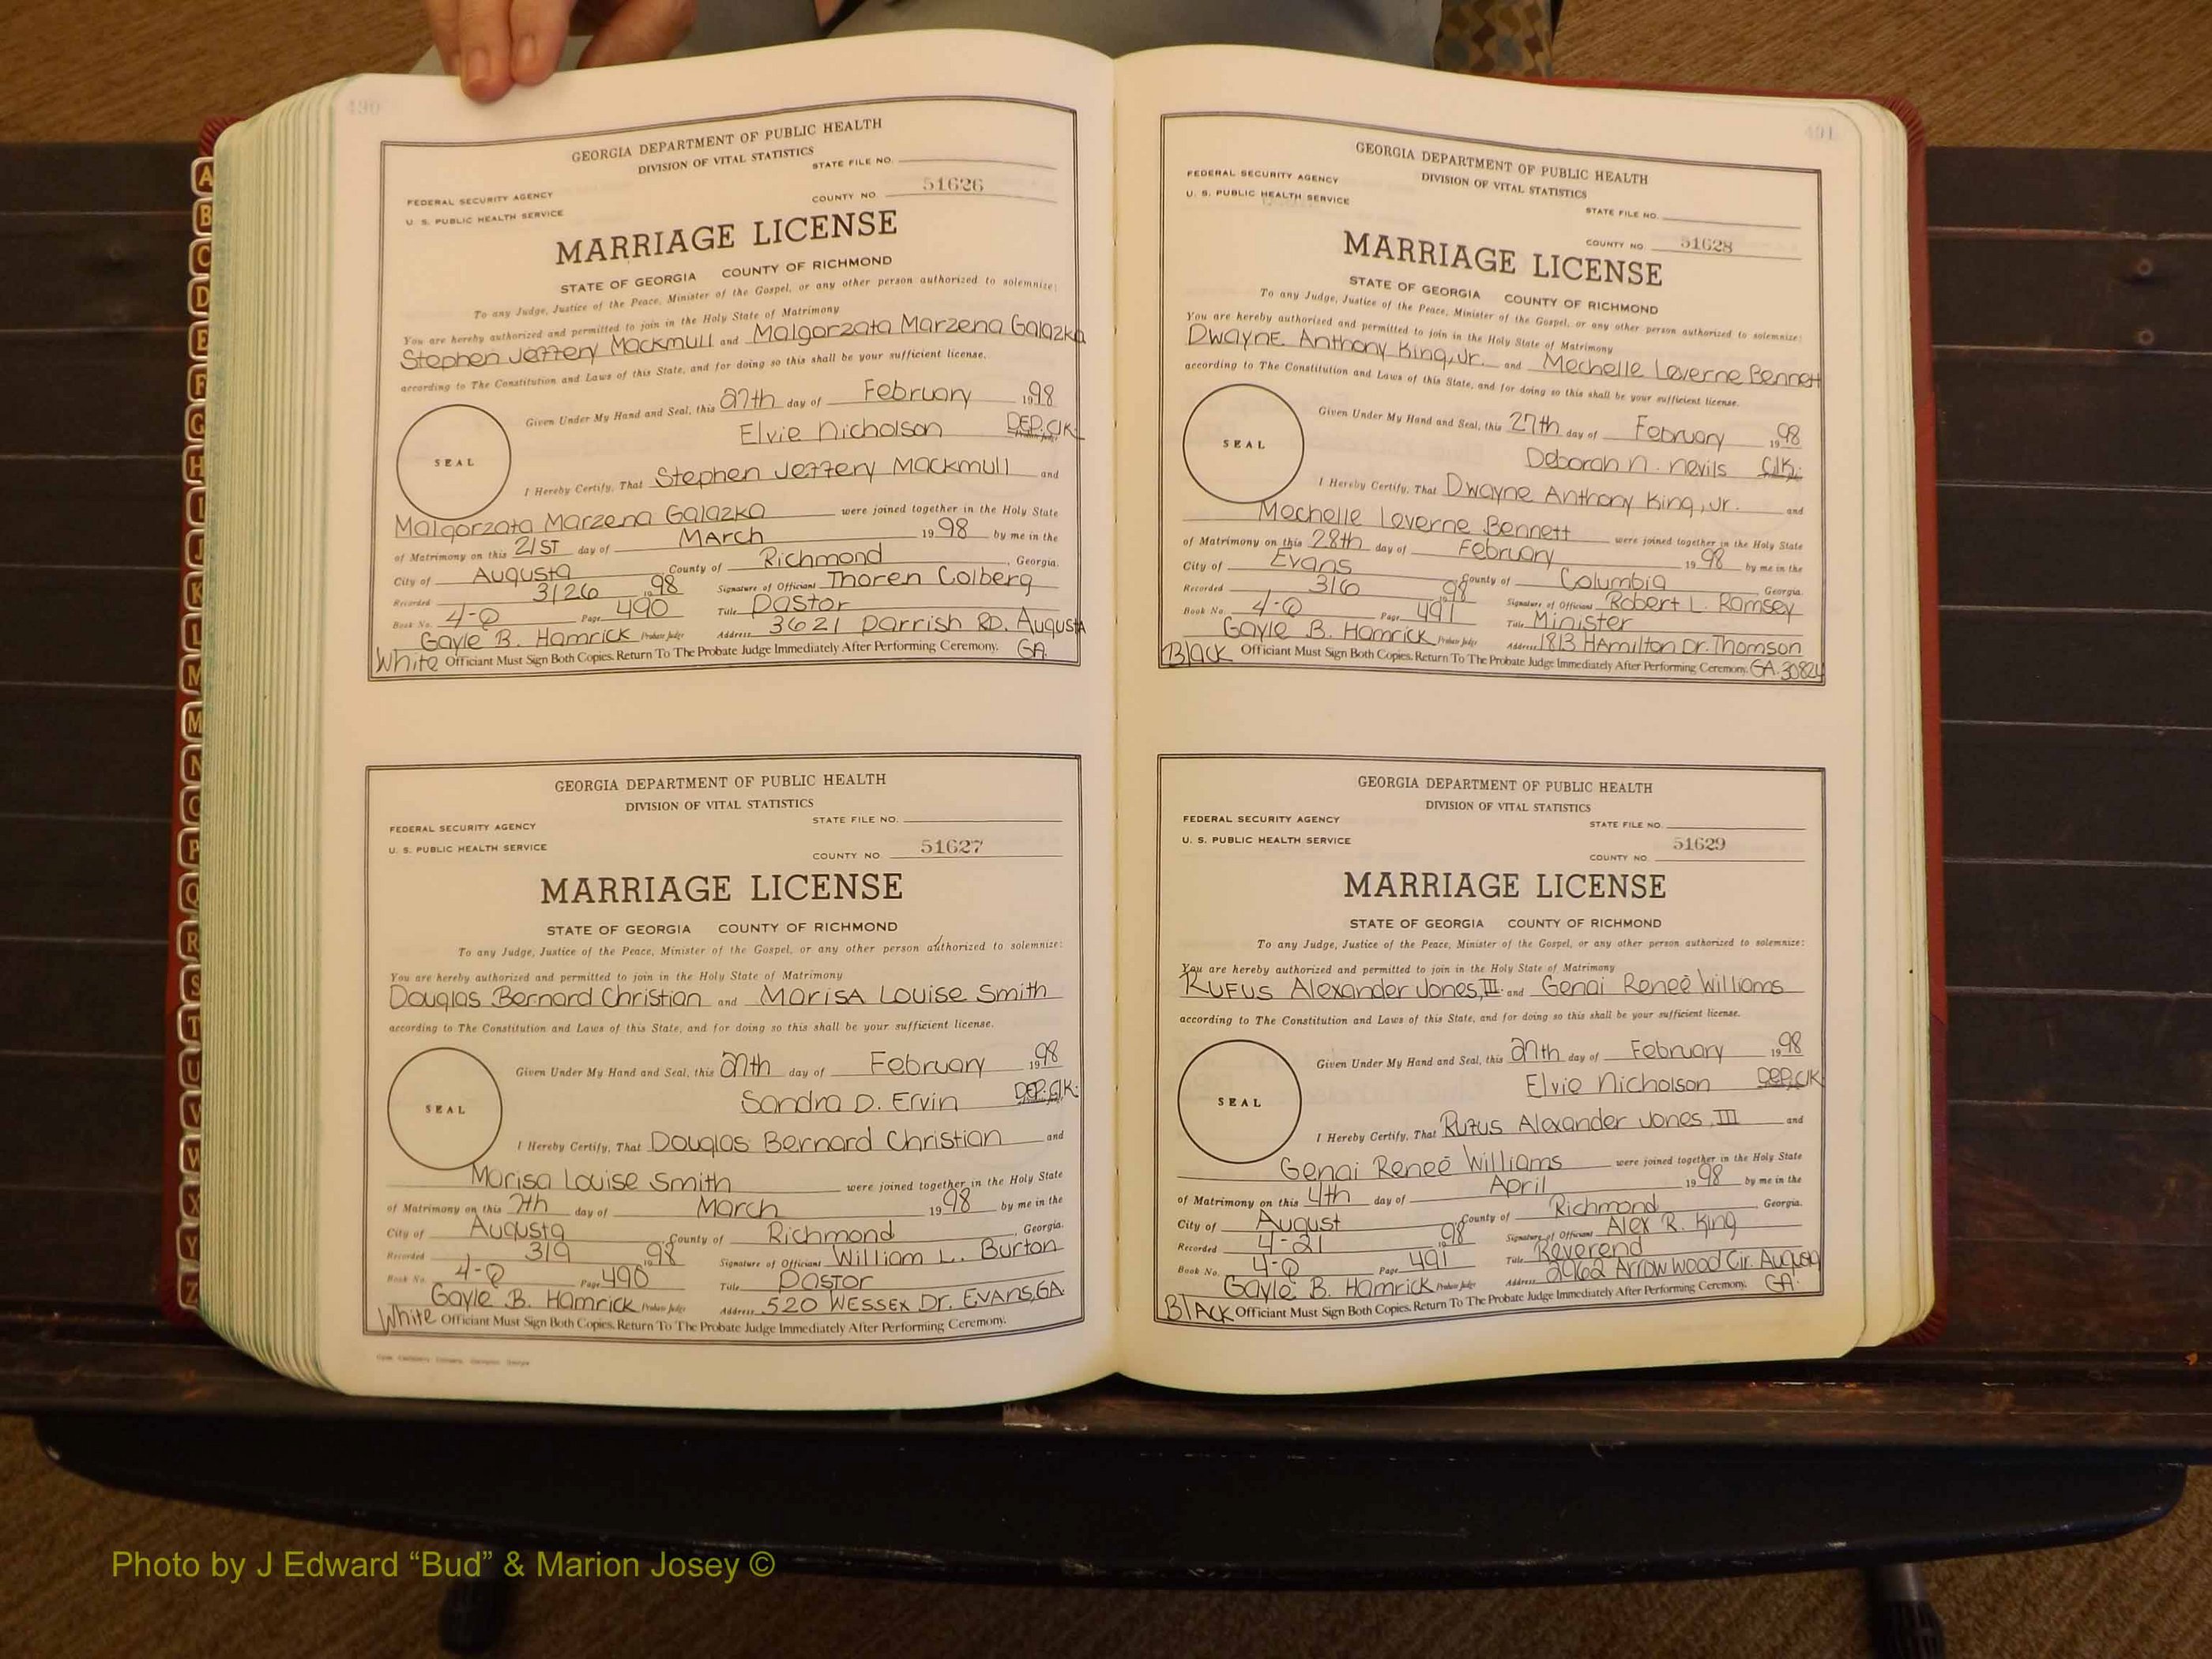 490
GEORGIA DEPARTMENT OF PUBLIC HEALTH
DIVISION OF VITAL STATISTICS
STATE FILE NO.
FEDERAL SECURITY AGENCY
U. S. PUBLIC HEALTH SERVICE
COUNTY NO 51626
MARRIAGE LICENSE
STATE OF GEORGIA COUNTY OF RICHMOND
To any Judge, Justice of the Peace, Minister of the Gospel, or any other person authorized to solemnize:
You are hereby authorized and permitted to join in the Holy State of Matrimony
Stephen Jeffery Mackmull and Malgorzata Marzena Galazka
according to The Constitution and Laws of this State, and for doing so this shall be your sufficient license.
Given Under My Hand and Seal, this 27th day of February 1998
Elvie Nicholson DEP. Clk.
SEAL
I Hereby Certify, That Stephen Jeffery Mackmull and
Malgorzata Marzena Galazka were joined together in the Holy State
of Matrimony on this 21ST day of MArch 1998 by me in the
City of Augusta County of Richmond, Georgia.
Recorded 3/26 1998 Signature of Officiant Thoren Colberg
Book No. 4-Q Page 490 Title Pastor
Gayle B. Hamrick Probate Judge Address 3621 Parrish RD. Augusta
White Officiant Must Sign Both Copies. Return To The Probate Judge Immediately After Performing Ceremony. GA.
GEORGIA DEPARTMENT OF PUBLIC HEALTH
DIVISION OF VITAL STATISTICS
STATE FILE NO.
FEDERAL SECURITY AGENCY
U. S. PUBLIC HEALTH SERVICE
COUNTY NO. 51627
MARRIAGE LICENSE
STATE OF GEORGIA COUNTY OF RICHMOND
To any Judge, Justice of the Peace, Minister of the Gospel, or any other person authorized to solemnize:
You are hereby authorized and permitted to join in the Holy State of Matrimony
Douglas Bernard Christian and MArisA Louise Smith
according to The Constitution and Laws of this State, and for doing so this shall be your sufficient license.
Given Under My Hand and Seal, this 27th day of February 1998
Sandra D. Ervin DEP. Clk.
SEAL
I Hereby Certify, That Douglas Bernard Christian and
Marisa Louise Smith were joined together in the Holy State
of Matrimony on this 7th day of March 1998 by me in the
City of Augusta County of Richmond, Georgia.
Recorded 3/9 1998 Signature of Officiant William L. Burton
Book No. 4-Q Page 490 Title Pastor
Gayle B. Hamrick Probate Judge Address 520 WESSEX Dr. EVANS, GA.
White Officiant Must Sign Both Copies. Return To The Probate Judge Immediately After Performing Ceremony.
491
GEORGIA DEPARTMENT OF PUBLIC HEALTH
DIVISION OF VITAL STATISTICS
FEDERAL SECURITY AGENCY
U. S. PUBLIC HEALTH SERVICE
STATE FILE NO.
COUNTY NO. 51628
MARRIAGE LICENSE
STATE OF GEORGIA COUNTY OF RICHMOND
To any Judge, Justice of the Peace, Minister of the Gospel, or any other person authorized to solemnize:
You are hereby authorized and permitted to join in the Holy State of Matrimony
DwaynE Anthony King, Jr. and Mechelle Laverne Bennett
according to The Constitution and Laws of this State, and for doing so this shall be your sufficient license.
Given Under My Hand and Seal, this 27th day of February 1998
Deborah N. Nevils Clk.
SEAL
I Hereby Certify, That Dwayne Anthony King, Jr. and
Mechelle Laverne Bennett were joined together in the Holy State
of Matrimony on this 28th day of February 1998 by me in the
City of Evans County of Columbia, Georgia.
Recorded 3/6 1998 Signature of Officiant Robert L. Ramsey
Book No. 4-Q Page 491 Title Minister
Gayle B. Hamrick Probate Judge Address 1813 HAmilton Dr. Thomson
Black Officiant Must Sign Both Copies. Return To The Probate Judge Immediately After Performing Ceremony. GA. 30824
GEORGIA DEPARTMENT OF PUBLIC HEALTH
DIVISION OF VITAL STATISTICS
FEDERAL SECURITY AGENCY
STATE FILE NO.
U. S. PUBLIC HEALTH SERVICE
COUNTY NO. 51629
MARRIAGE LICENSE
STATE OF GEORGIA COUNTY OF RICHMOND
To any Judge, Justice of the Peace, Minister of the Gospel, or any other person authorized to solemnize:
You are hereby authorized and permitted to join in the Holy State of Matrimony
RUFUS Alexander Jones, III and Genai Reneé Williams
according to The Constitution and Laws of this State, and for doing so this shall be your sufficient license.
Given Under My Hand and Seal, this 27th day of February 1998
Elvie Nicholson DEP. Clk
SEAL
I Hereby Certify, That Rufus Alexander Jones, III and
Genai Reneé Williams were joined together in the Holy State
of Matrimony on this 4th day of April 1998 by me in the
City of August County of Richmond, Georgia.
Recorded 4-21 1998 Signature of Officiant Alex R. King
Book No. 4-Q Page 491 Title Reverend
Gayle B. Hamrick Probate Judge Address 2962 Arrow wood Cir. Augusta
BlACK Officiant Must Sign Both Copies. Return To The Probate Judge Immediately After Performing Ceremony. GA.
A
B
C
D
E
F
G
H
I
J
K
L
M
M
N
O
P
Q
R
S
T
U
V
W
X
Y
Z
Photo by J Edward “Bud” & Marion Josey ©